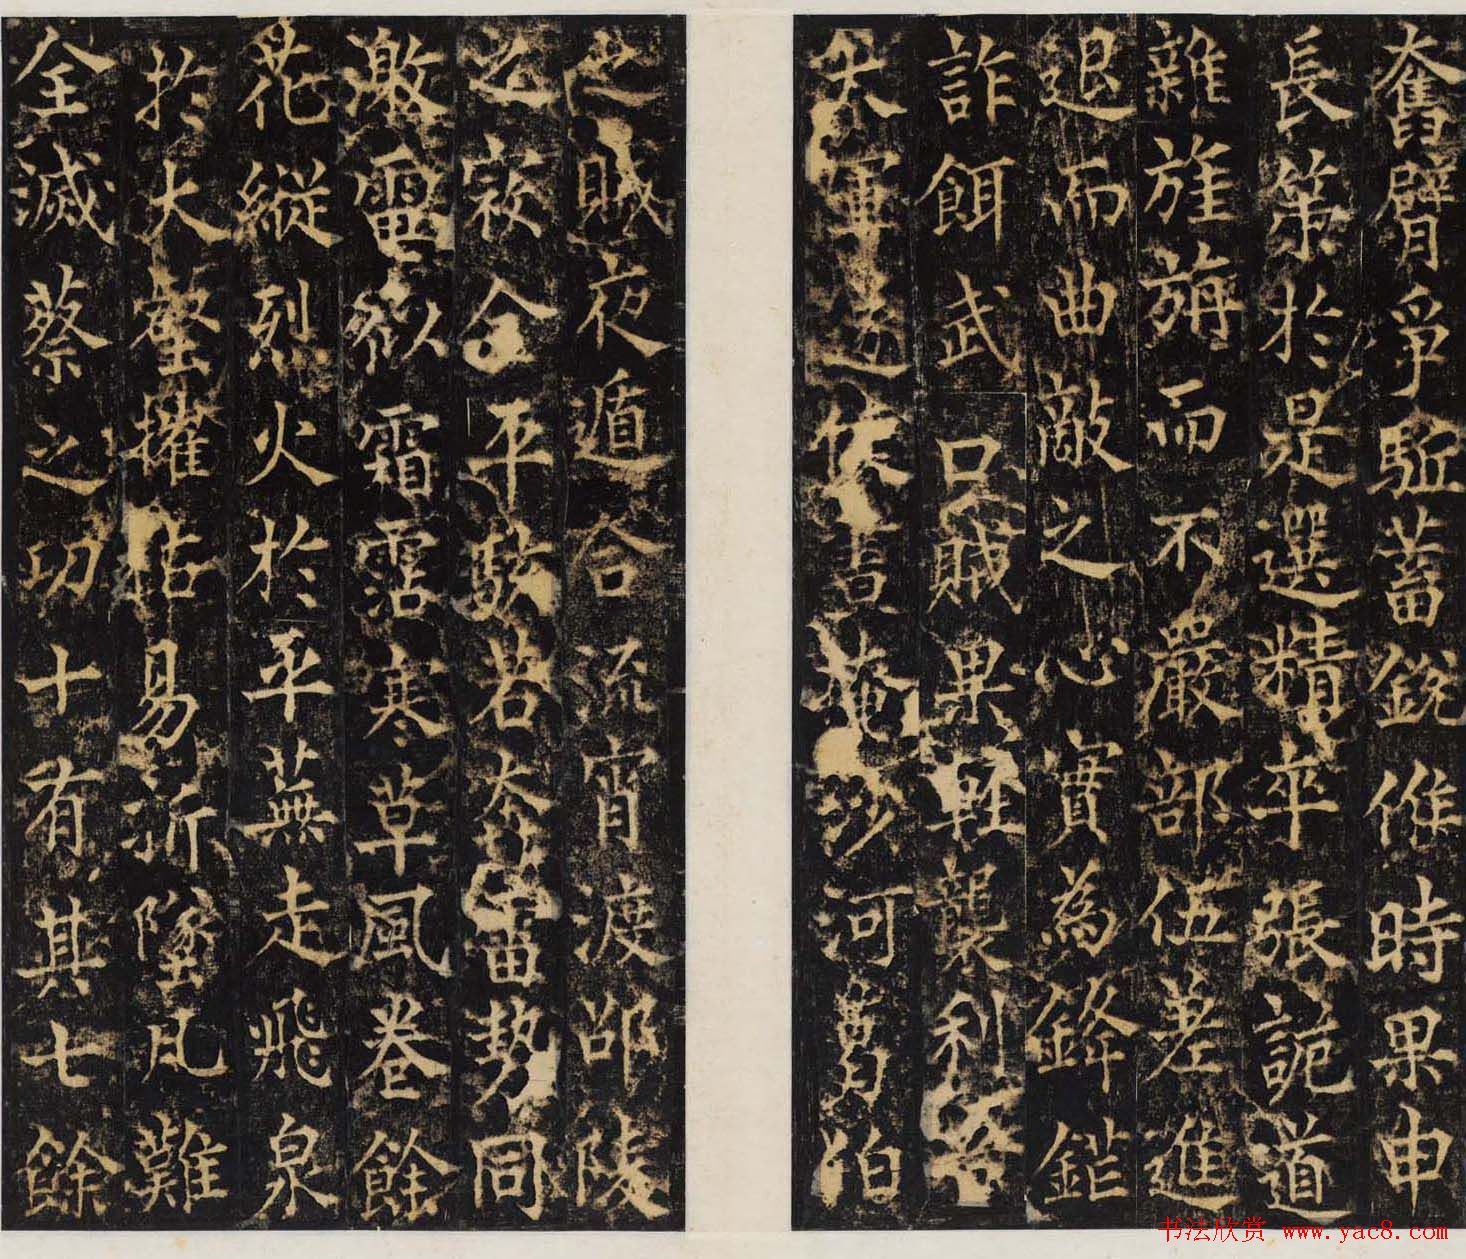 奮臂爭駈蓄銳倠時果申
長策於是選精卒張詭道
雜旌旃而不嚴部伍差進
退而曲敵之心實為鋒鎧
詐餌武口賊果輕襲利
大軍掩沙河泊
之賊夜遁合流宵渡邵陵
之寇令平駭若奔雷勢同
激電似霜霑寒草風卷餘
花縱烈火於平蕪走飛泉
於大壑摧枯易折墜瓦難
全滅蔡之功十有其七餘
书法欣赏 www.yac8.com